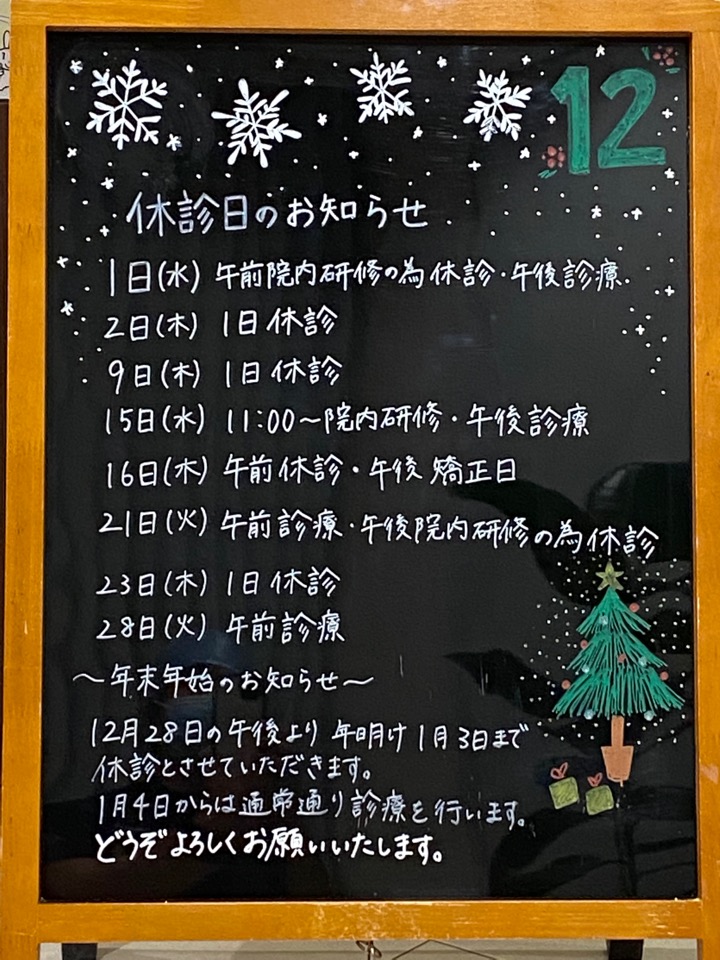 12
休診日のお知らせ
1日(水) 午前院内研修の為休診・午後診療
2日(木) 1日休診
9日(木) 1日休診
15日(水) 11:00～院内研修・午後診療
16日(木) 午前休診・午後 矯正日
21日(火) 午前診療・午後院内研修の為休診
23日(木) 1日休診
28日(火) 午前診療
～年末年始のお知らせ～
12月28日の午後より 年明け1月3日まで
休診とさせていただきます。
1月4日からは通常通り診療を行います。
どうぞよろしくお願いいたします。